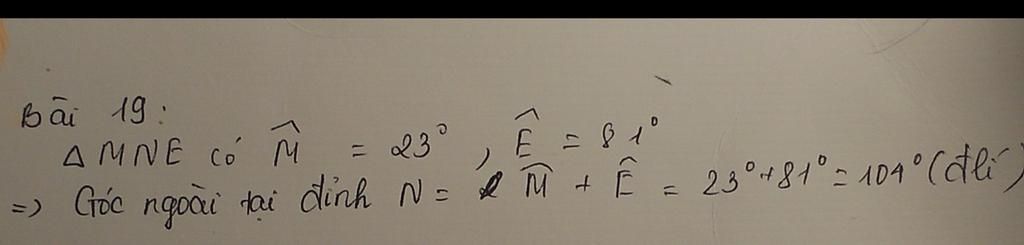 Bài 19:
Δ MNE có M̂ = 23°, Ê = 81°
=> Góc ngoài tại đỉnh N = M̂ + Ê = 23°+81° = 104° (đlí)